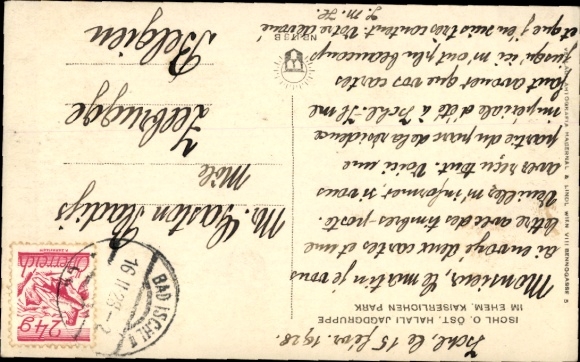 Ischl, le 15 fevr. 1928.
ISCHL O. ÖST. HALALI JAGDGRUPPE
IM EHEM. KAISERLICHEN PARK
Monsieur, Ce matin je vous
ai envoyé deux cartes et une
lettre avec des timbres-poste.
Veuillez m'informer, si vous
avez reçu tout. Voici une
partie du parc de la résidence
impériale d'été à Ischl. Il me
faut avouer que vos cartes
jusqu'ici m'ont plu beaucoup
et que j'en suis tres content. Votre dévoué
J. M. H.
Mr. Gaston Radijs
Môle
Zeebrugge
Belgien
BAD ISCHL 1
16 II 28
Österreich
24g
NB 173 B
HAGERNAL & LINDL, WIEN VIII BENNOGASSE 5